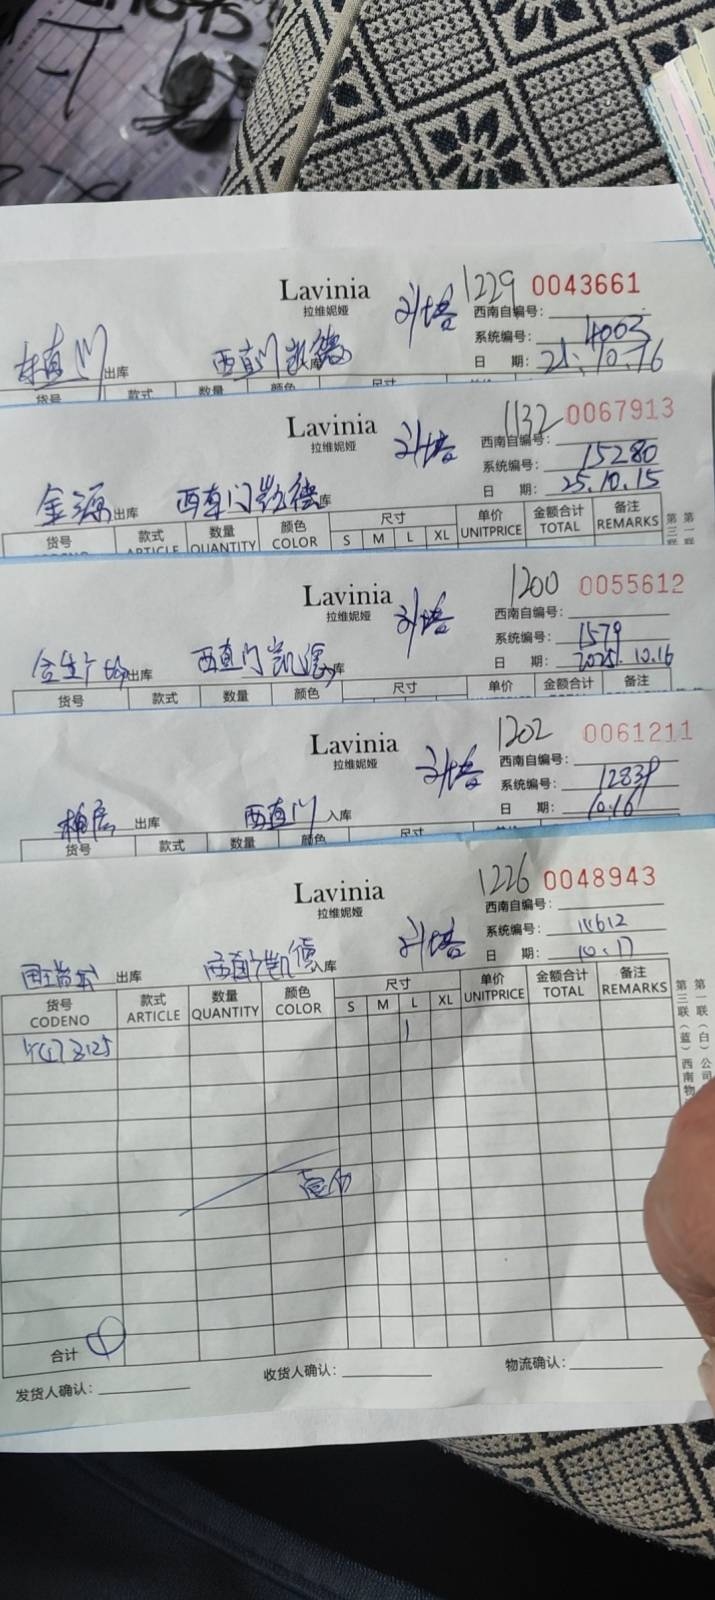 Lavinia
拉维妮娅
刘培
1229 0043661
西南自编号:
系统编号: 4003
日 期: 25.10.16
东直门出库 西直门凯德 库
货号 款式 数量 颜色 尺寸
Lavinia
拉维妮娅
刘培
1132 0067913
西南自编号:
系统编号: 15280
日 期: 25.10.15
金源出库 西直门凯德库
货号 款式 ARTICLE 数量 QUANTITY 颜色 COLOR 尺寸 S M L XL 单价 UNITPRICE 金额合计 TOTAL 备注 REMARKS
Lavinia
拉维妮娅
刘培
1200 0055612
西南自编号:
系统编号: 1579
日 期: 2025.10.16
合生广场出库 西直门凯德 库
货号 款式 数量 颜色 尺寸 单价 金额合计 备注
Lavinia
拉维妮娅
刘培
1202 0061211
西南自编号:
系统编号:
日 期: 10.16
出库 西直门 入库
货号 款式 数量 颜色 尺寸
Lavinia
拉维妮娅
刘培
1226 0048943
西南自编号:
系统编号: 11612
日 期: 10.17
国瑞城 出库 西直门凯德 入库
货号 CODENO 款式 ARTICLE 数量 QUANTITY 颜色 COLOR 尺寸 S M L XL 单价 UNITPRICE 金额合计 TOTAL 备注 REMARKS
1
壹份
合计 ①
发货人确认: 收货人确认: 物流确认:
第一联(白)公司
第三联(蓝)西南物